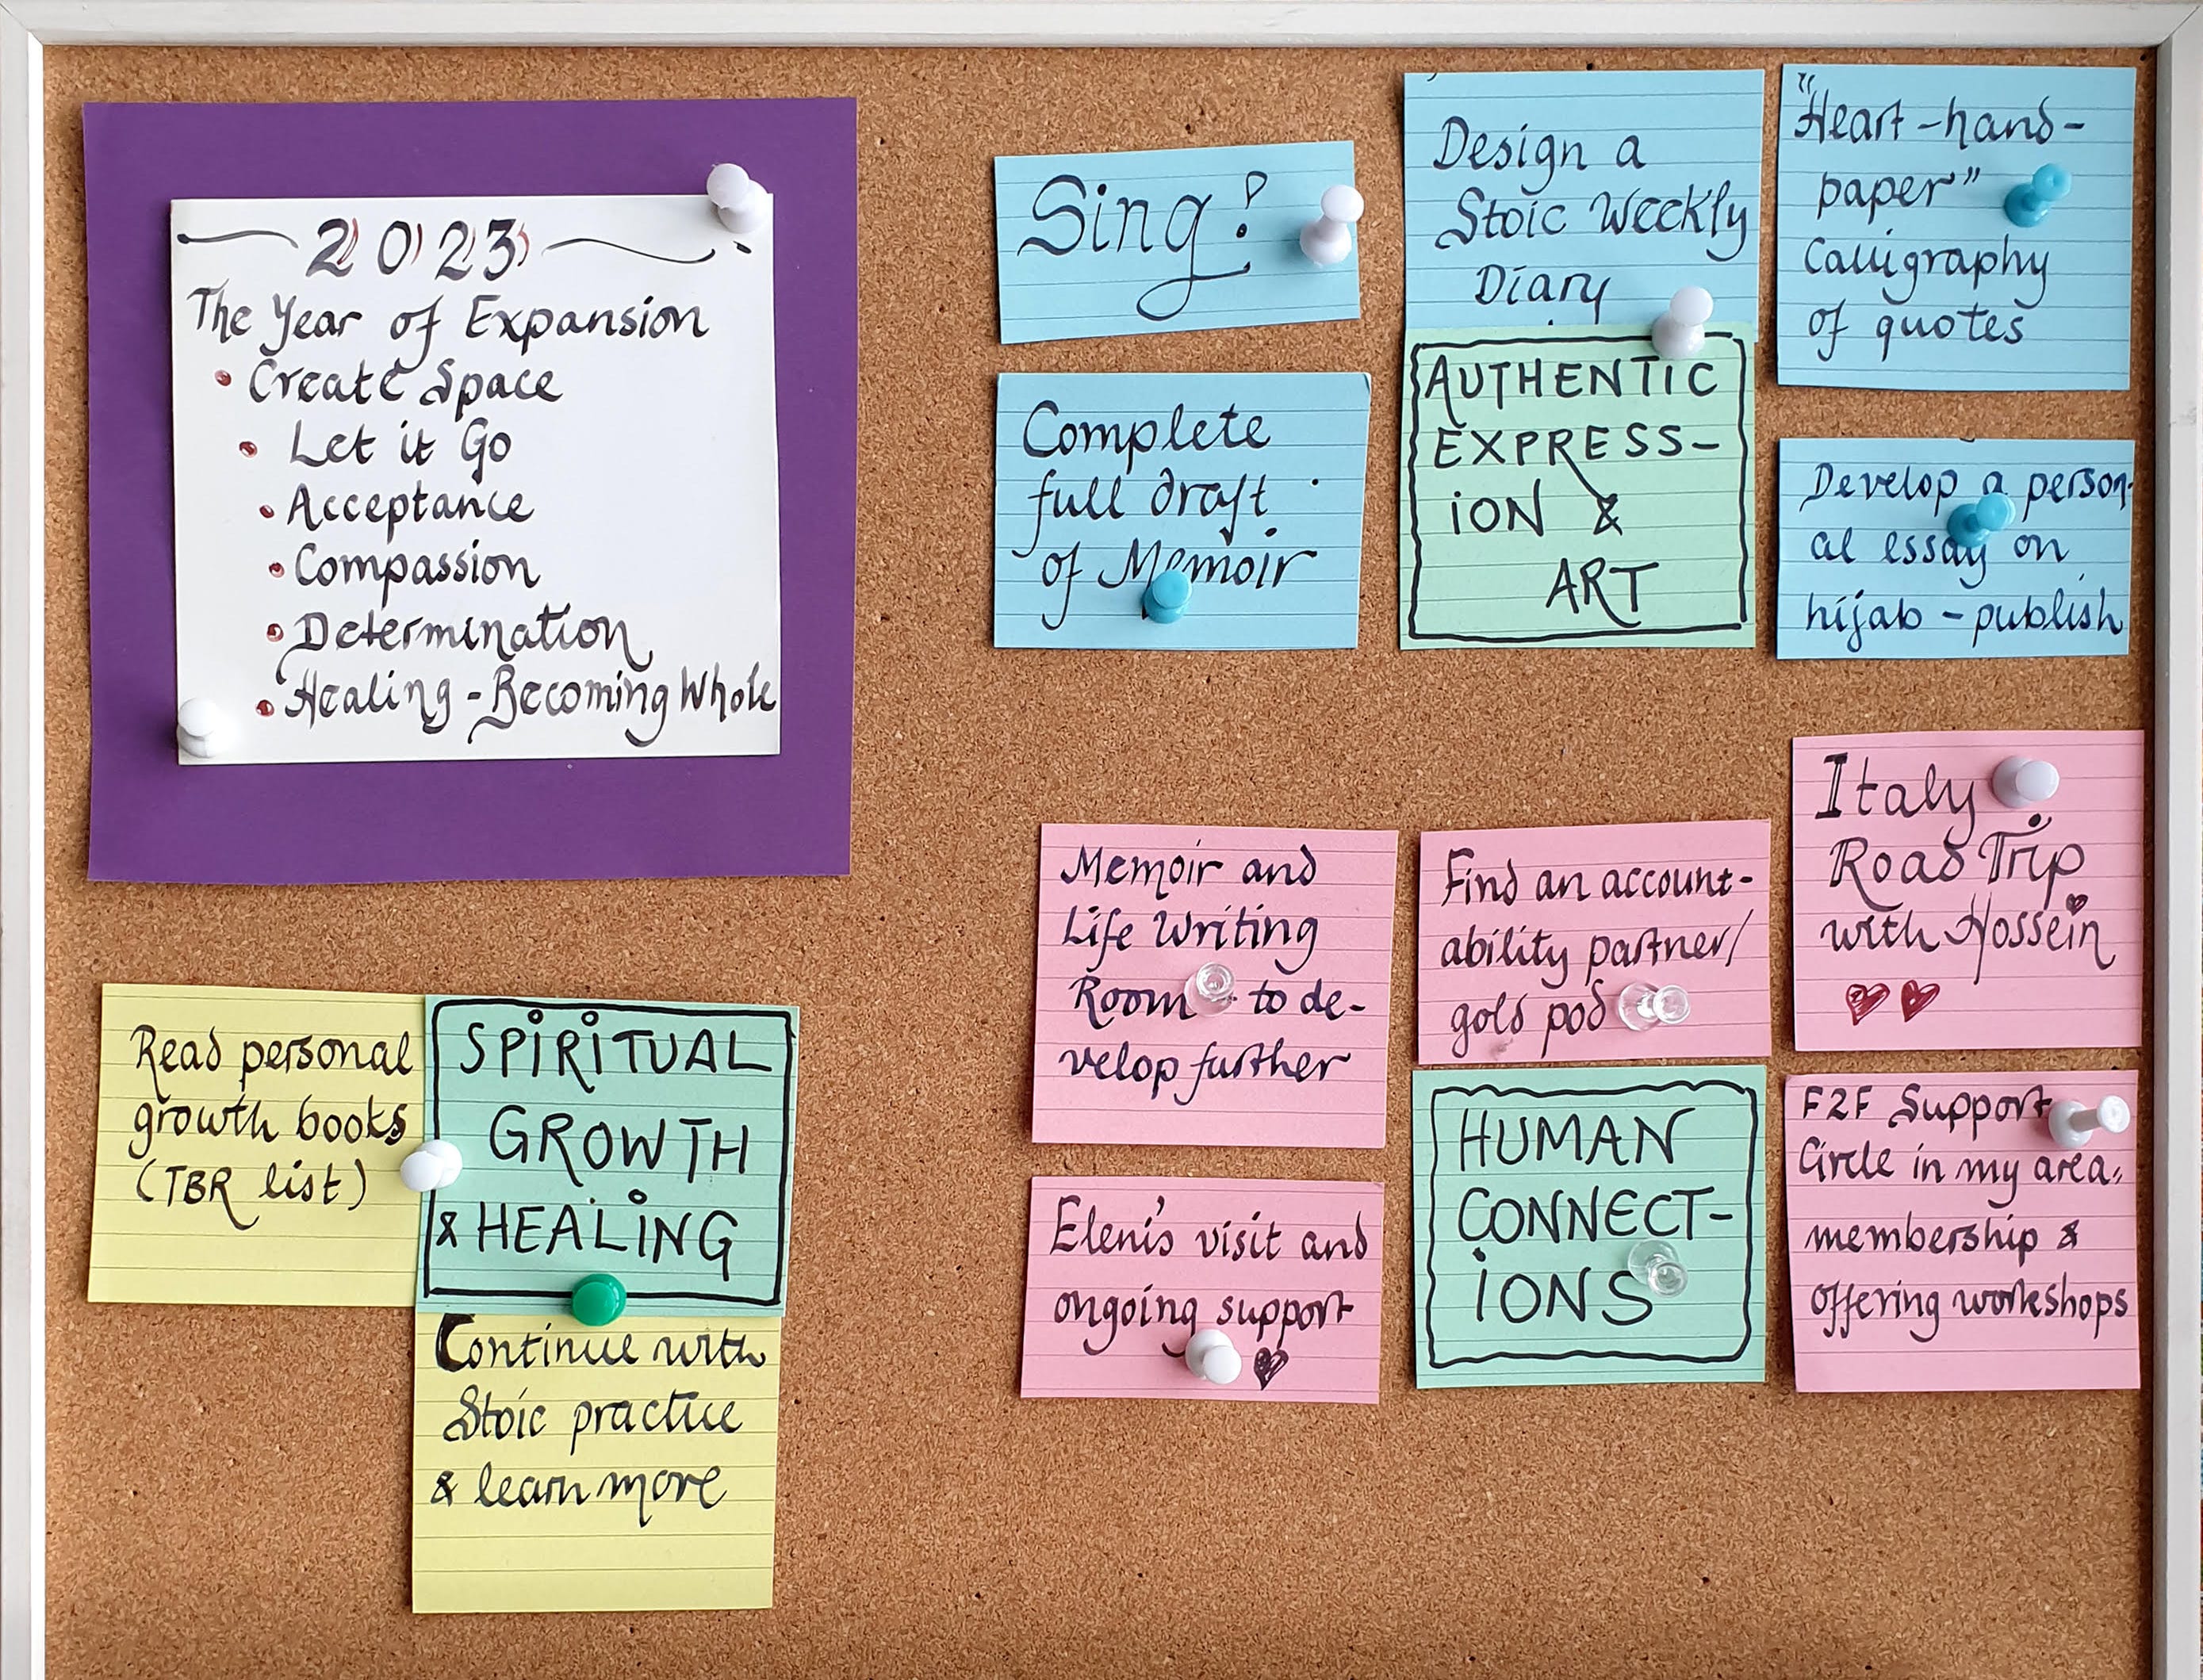 2023
The Year of Expansion
• Create Space
• Let it Go
• Acceptance
• Compassion
• Determination
• Healing - Becoming Whole
Sing!
Design a
Stoic Weekly
Diary
"Heart-hand-
paper"
Calligraphy
of quotes
Complete
full draft
of Memoir
AUTHENTIC
EXPRESS-
ION &
ART
Develop a person-
al essay on
hijab - publish
Memoir and
Life Writing
Room - to de-
velop further
Find an account-
ability partner/
gold pod
Italy
Road Trip
with Hossein
Eleni's visit and
ongoing support
HUMAN
CONNECT-
IONS
F2F Support
Circle in my area,
membership &
offering workshops
Read personal
growth books
(TBR list)
SPIRITUAL
GROWTH
& HEALING
Continue with
Stoic practice
& learn more